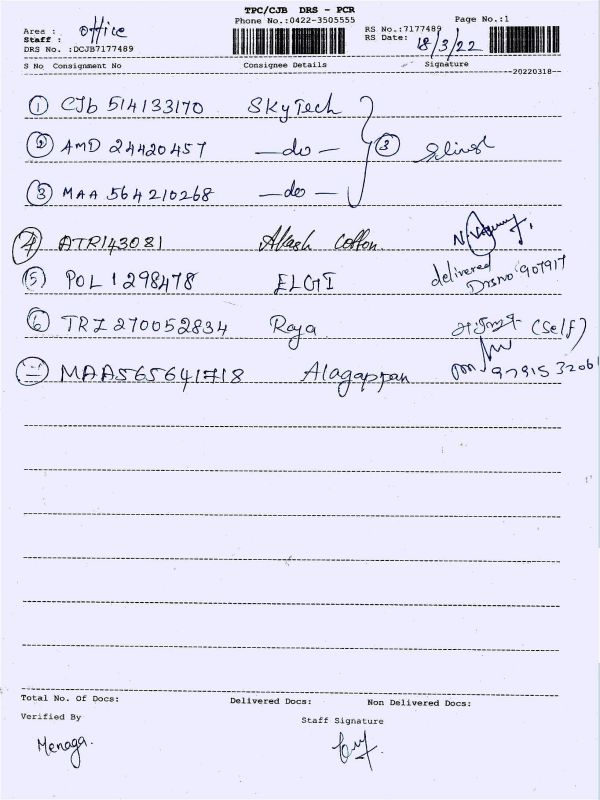 TPC/CJB DRS - PCR
Phone No.:0422-3505555
Page No.:1
Area : office
Staff :
DRS No. :DCJB7177489
RS No.:7177489
RS Date: 18/3/22
S No Consignment No Consignee Details Signature
20220318
1 CJb 514133170 SKyTech
2 AMD 24420457 -do- 3
3 MAA 564210268 -do-
4 ATR143081 Akash Cotton
5 POL 1298478 ELGI delivered Drsno 907917
6 TRZ 270052834 Raja (Self)
MAA565641718 Alagappan
Total No. Of Docs: Delivered Docs: Non Delivered Docs:
Verified By Staff Signature
Menaga.